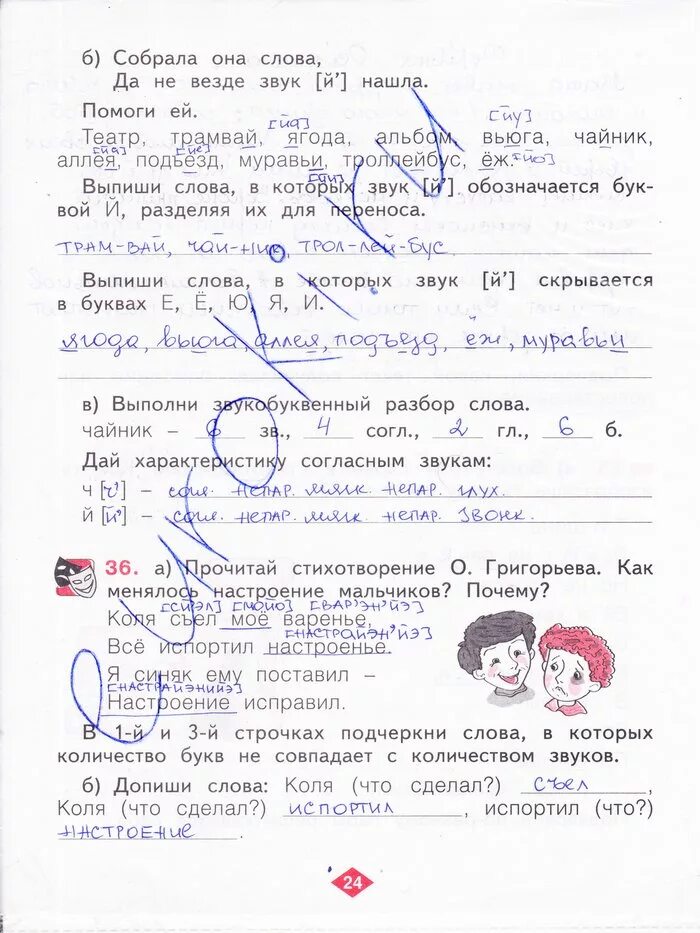 б) Собрала она слова,
Да не везде звук [й'] нашла.
Помоги ей.
[йа] [йу]
Театр, трамвай, ягода, альбом, вьюга, чайник,
[йа] [йе]
аллея, подъезд, муравьи, троллейбус, ёж. [йо]
[йи]
Выпиши слова, в которых звук [й'] обозначается бук-
вой Й, разделяя их для переноса.
ТРАМ-ВАЙ, ЧАЙ-НИК, ТРОЛ-ЛЕЙ-БУС
Выпиши слова, в которых звук [й'] скрывается
в буквах Е, Ё, Ю, Я, И.
ягода, вьюга, аллея, подъезд, ёж, муравьи
в) Выполни звукобуквенный разбор слова.
чайник – 6 зв., 4 согл., 2 гл., 6 б.
Дай характеристику согласным звукам:
ч [ч'] – согл. непар. мягк. непар. глух.
й [й'] – согл. непар. мягк. непар. звонк.
36. а) Прочитай стихотворение О. Григорьева. Как
менялось настроение мальчиков? Почему?
[МОЙО] [ВАР'ЭН'ЙЭ]
Коля съел моё варенье,
[НАСТРАЙЭН'ЙЭ]
Всё испортил настроенье.
Я синяк ему поставил –
[НАСТРАЙЭНИЙЭ]
Настроение исправил.
В 1-й и 3-й строчках подчеркни слова, в которых
количество букв не совпадает с количеством звуков.
б) Допиши слова: Коля (что сделал?) съел,
Коля (что сделал?) испортил, испортил (что?)
настроение.
24